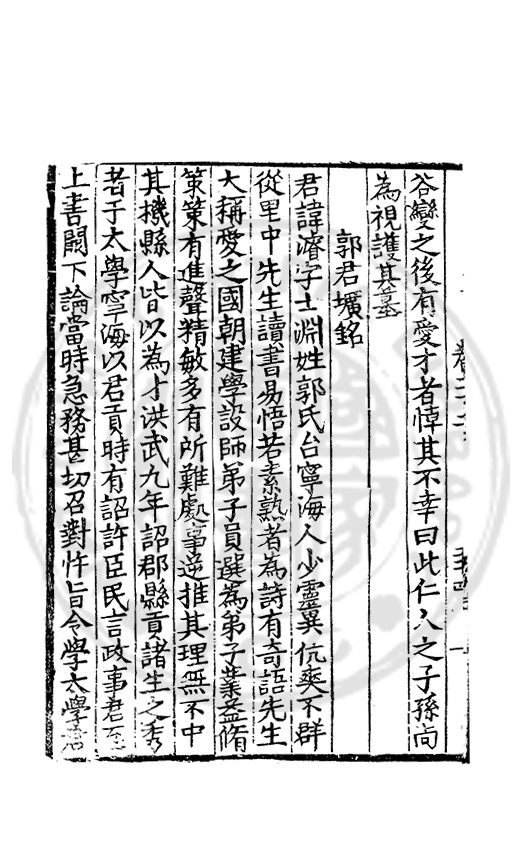 谷變之後有愛才者悼其不幸曰此仁人之子孫尚
為視護其墓
郭君壙銘
君諱濬字士淵姓郭氏台寧海人少靈異伉爽不群
從里中先生讀書易悟若素熟者為詩有奇語先生
大稱愛之國朝建學設師弟子員選為弟子業益脩
策策有進聲精敏多有所難處事逆推其理無不中
其機縣人皆以為才洪武九年詔郡縣貢諸生之秀
者于太學寧海以君貢時有詔許臣民言政事君至
上書闕下論當時急務甚切召對忤旨令學太學君